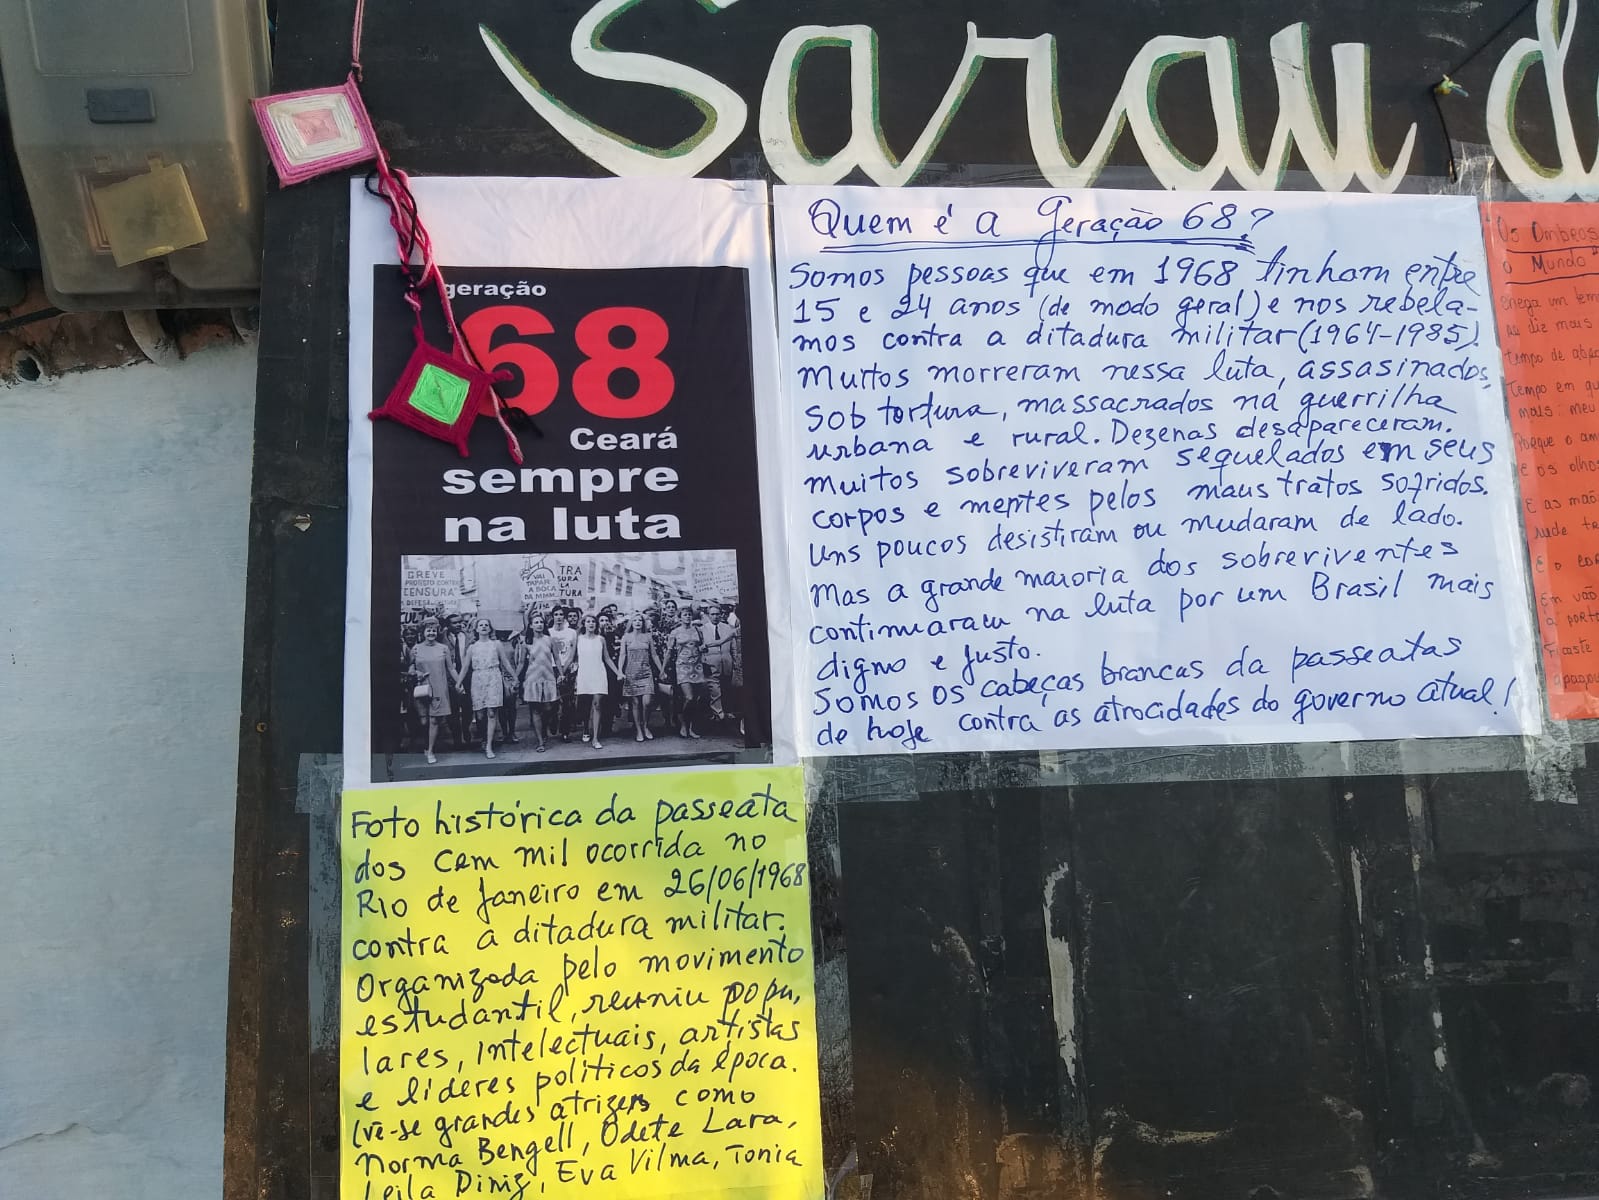 Sarau d
geração
68
Ceará
sempre
na luta
GREVE
PROTESTO CONTRA
CENSURA
VAI
TAPAR
A BOCA
DA MÃE
TRA
SURA
LA
TURA
Quem é a Geração 68?
Somos pessoas que em 1968 tinham entre
15 e 24 anos (de modo geral) e nos rebela-
mos contra a ditadura militar (1964-1985).
Muitos morreram nessa luta, assasinados,
sob tortura, massacrados na guerrilha
urbana e rural. Dezenas desapareceram.
muitos sobreviveram sequelados em seus
corpos e mentes pelos maus tratos sofridos.
Uns poucos desistiram ou mudaram de lado.
mas a grande maioria dos sobreviventes
continuaram na luta por um Brasil mais
digno e justo.
Somos os cabeças brancas da passeatas
de hoje contra as atrocidades do governo atual!
Foto histórica da passeata
dos Cem mil ocorrida no
Rio de Janeiro em 26/06/1968
contra a ditadura militar.
Organizada pelo movimento
estudantil, reuniu popu,
lares, intelectuais, artistas
e líderes políticos da época.
(vê-se grandes atrizes como
Norma Bengell, Odete Lara,
Leila Diniz, Eva Vilma, Tonia
Os Ombros
o Mundo
um tem
diz mais
tempo de
Tempo em qu
mais: meu
Porque o am
E os olhos
E as mão
rude te
E o
Em vão
a porta
Ficaste
apagou